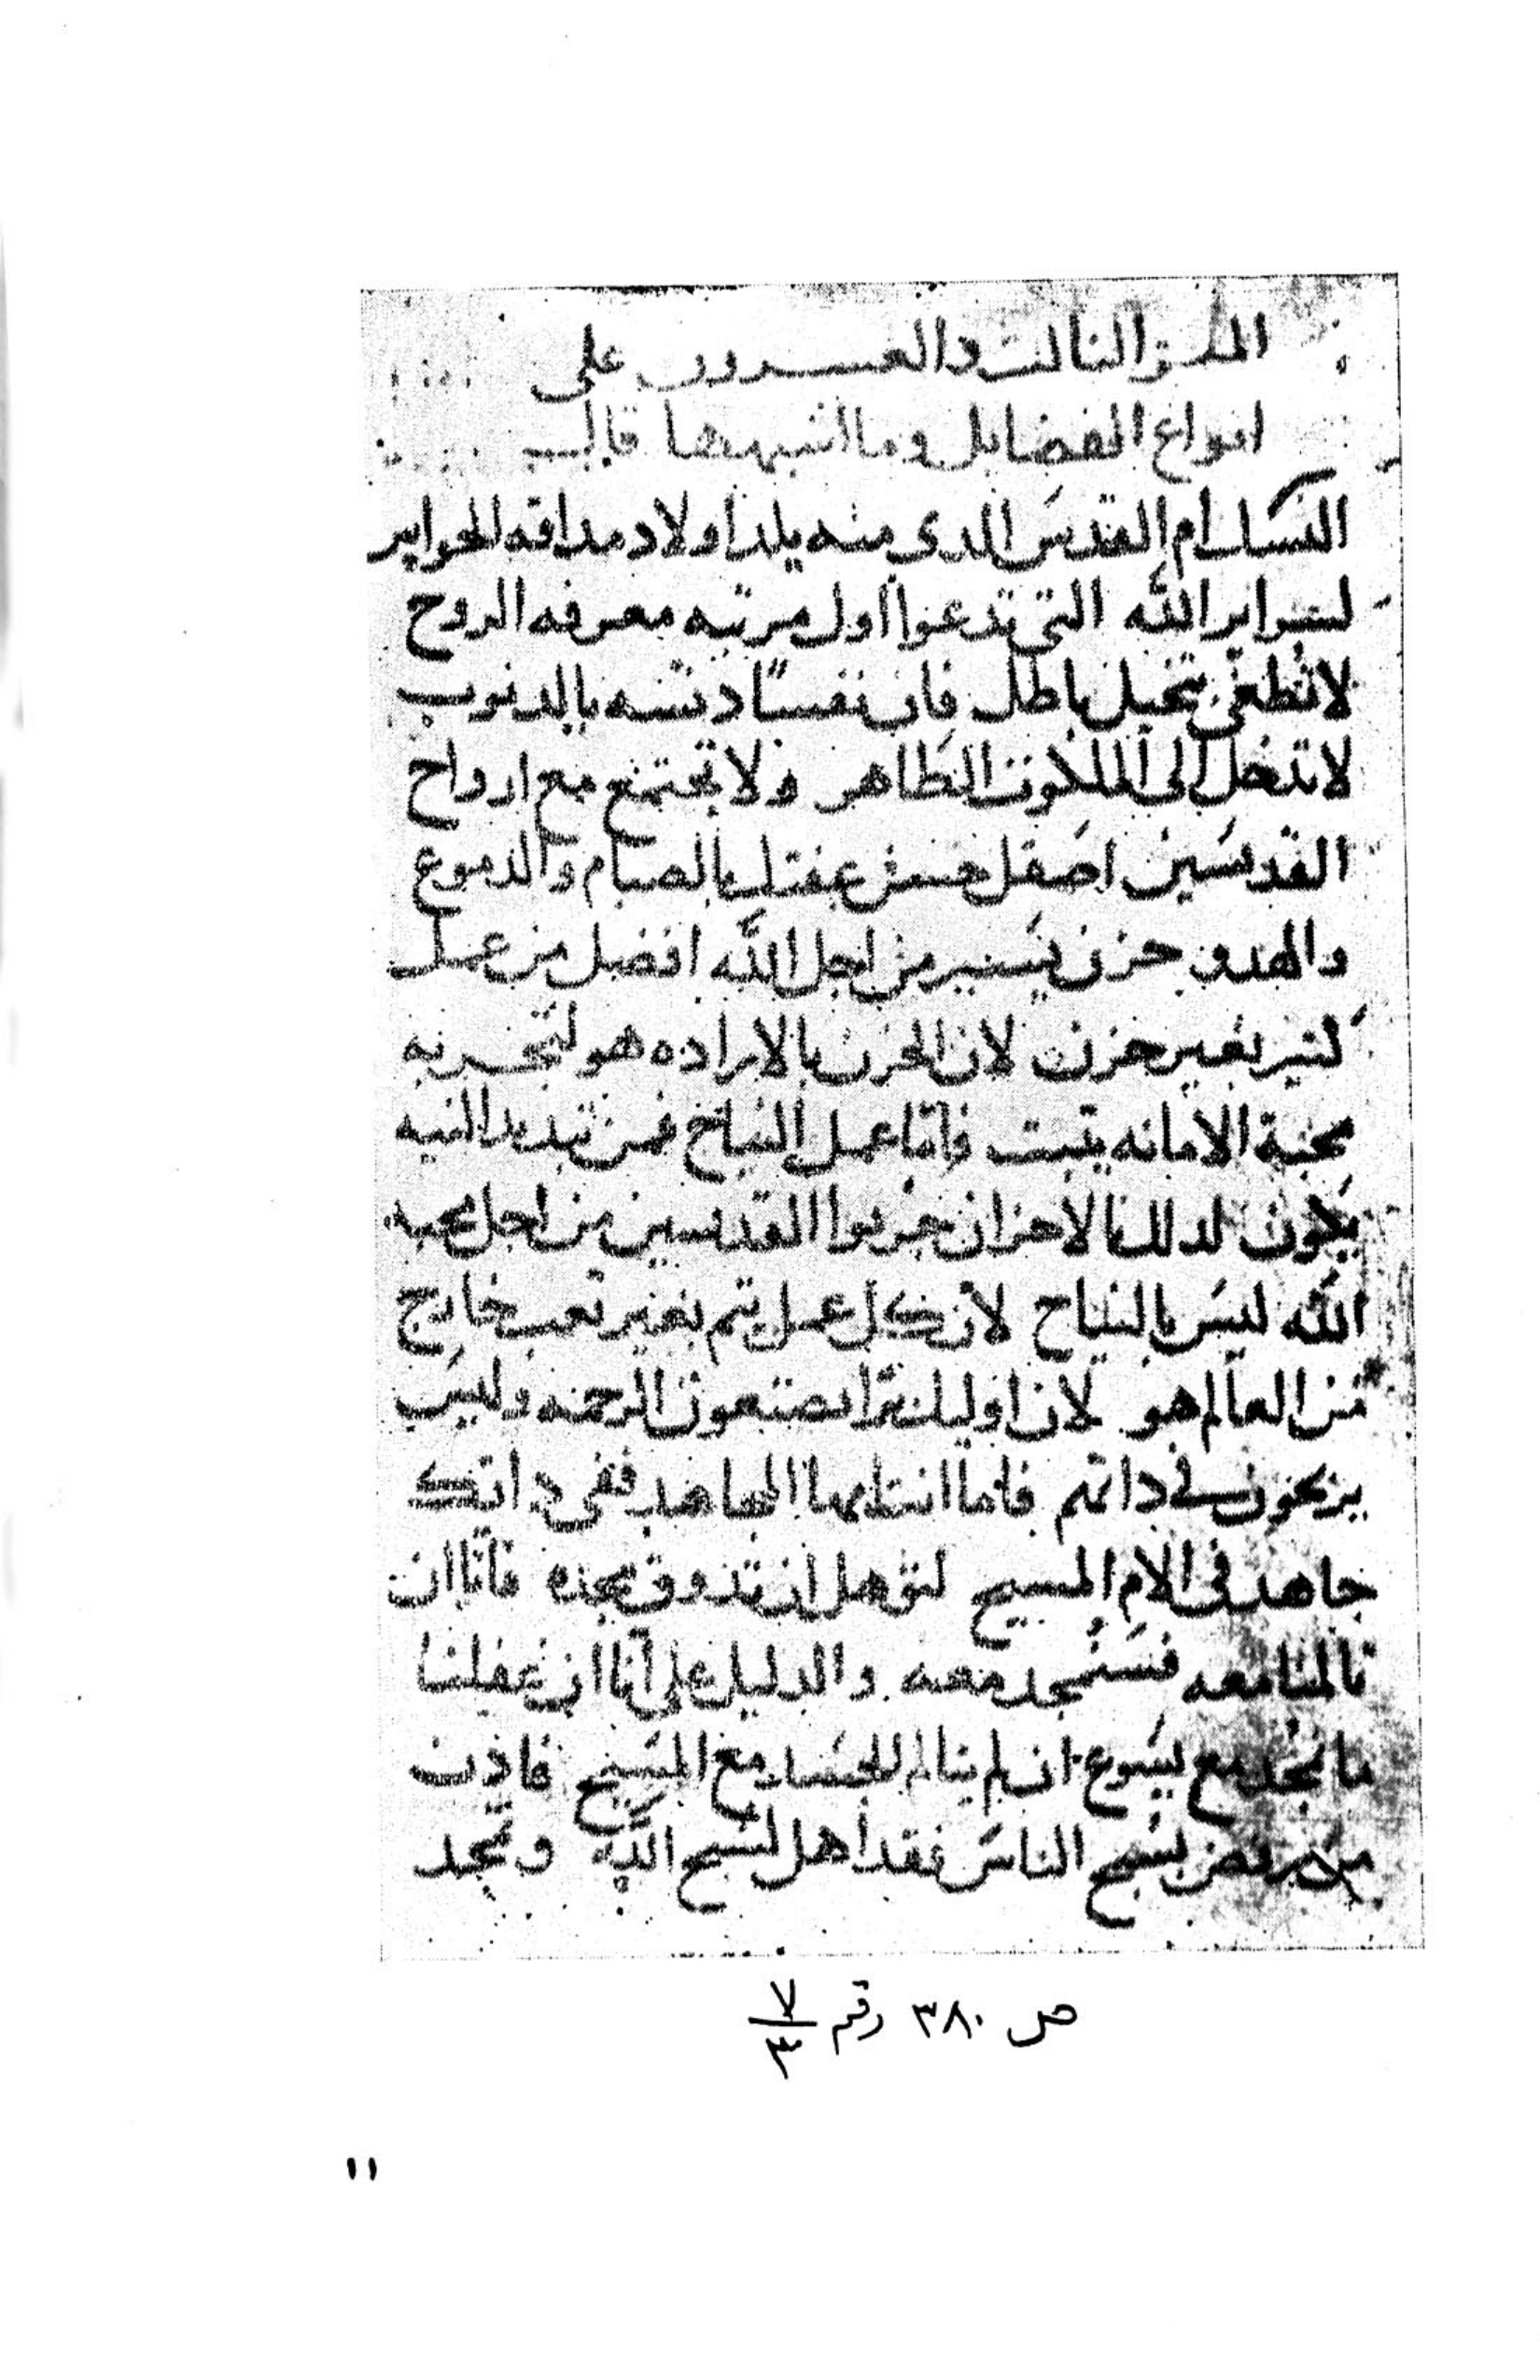 الميمر الثالث والعسرون على
انواع الفضايل وما اشبهها قال
النسك ام القدس الدى منه يلد اولاد مداقه الحواير
لسراير الله التى تدعوا اول مرتبه معرفه الروح
لا تطغى بتخيل باطل فان نفسًا دنسه بالدنوب
لا تدخل الى الملكوت الطاهر ولا تجتمع مع ارواح
القدسين اصقل حسن عفتك بالصيام والدموع
والهدو حزن يسير من اجل الله افضل من عمل
كتير بغير حزن لان الحزن بالاراده هو لتجربه
محبة الامانه يتبت فاما عمل النياح فمن تبديد النيه
يكون لدلك بالاحزان جربوا القدسين من اجل محبه
الله ليس بالنياح لان كل عمل يتم بغير تعب خارج
من العالم هو لان اوليك برا يصنعون الرحمه وليس
يزكون فى داتهم فاما انت ايها المجاهد ففى داتك
جاهد فى الام المسيح لتوهل ان تدوق مجده فانا ان
تالمنا معه فسنمجد معه والدليل على انا ان غفلنا
ما نمجد مع يسوع ان لم يتالم الجسد مع المسيح فاذن
من يرفض بسبح الناس فقد اهل لتسبح الله وتمجد
ص ٣٨٠ رقم ٧/٣
١١